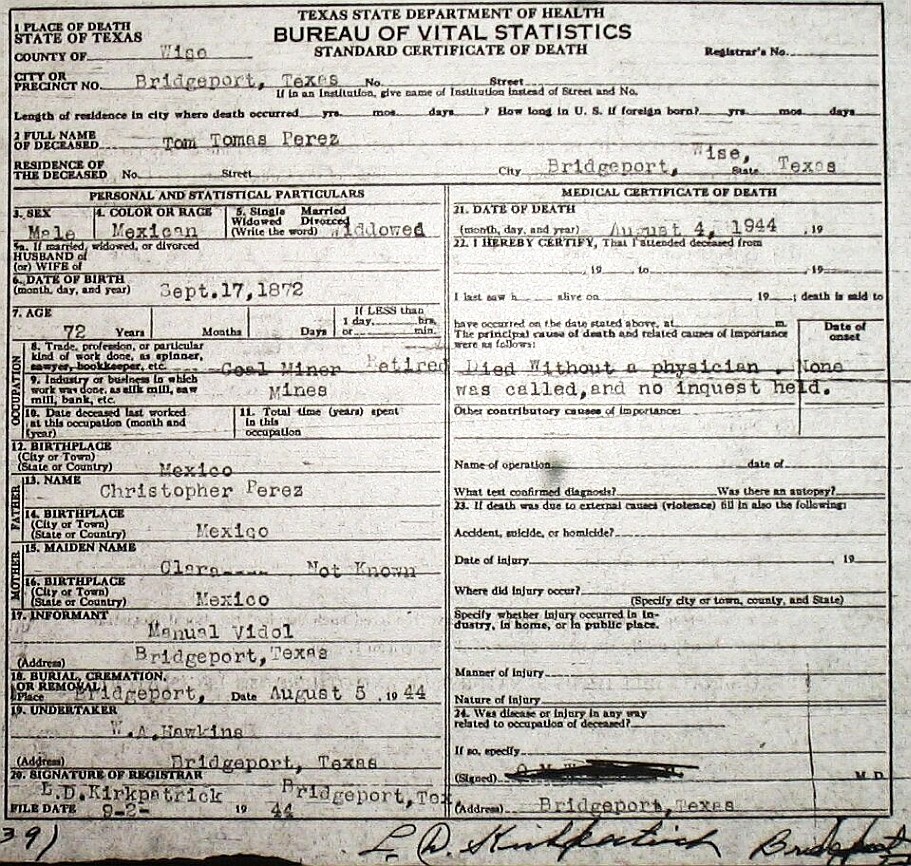 TEXAS STATE DEPARTMENT OF HEALTH
BUREAU OF VITAL STATISTICS
STANDARD CERTIFICATE OF DEATH
1 PLACE OF DEATH
STATE OF TEXAS
COUNTY OF Wise
Registrar's No.
CITY OR
PRECINCT NO. Bridgeport, Texas No. Street
If in an Institution, give name of Institution instead of Street and No.
Length of residence in city where death occurred yrs. mos. days ? How long in U. S. if foreign born? yrs. mos. days
2 FULL NAME
OF DECEASED Tom Tomas Perez
RESIDENCE OF
THE DECEASED No. Street City Bridgeport, Wise, State Texas
PERSONAL AND STATISTICAL PARTICULARS
3. SEX Male
4. COLOR OR RACE Mexican
5. Single Married
Widowed Divorced
(Write the word) Widdowed
5a. If married, widowed, or divorced
HUSBAND of
(or) WIFE of
6. DATE OF BIRTH
(month, day, and year) Sept.17,1872
7. AGE
72 Years Months Days
If LESS than
1 day, hrs.
or min.
OCCUPATION
8. Trade, profession, or particular
kind of work done, as spinner,
sawyer, bookkeeper, etc. Coal Miner Retired
9. Industry or business in which
work was done, as silk mill, saw
mill, bank, etc. Mines
10. Date deceased last worked
at this occupation (month and
year)
11. Total time (years) spent
in this
occupation
12. BIRTHPLACE
(City or Town)
(State or Country) Mexico
FATHER
13. NAME
Christopher Perez
14. BIRTHPLACE
(City or Town)
(State or Country) Mexico
MOTHER
15. MAIDEN NAME
Clara---- Not Known
16. BIRTHPLACE
(City or Town)
(State or Country) Mexico
17. INFORMANT
Manual Vidol
(Address) Bridgeport,Texas
18. BURIAL, CREMATION,
OR REMOVAL
Place Bridgeport, Date August 5 , 19 44
19. UNDERTAKER
W.A.Hawkins
(Address) Bridgeport, Texas
20. SIGNATURE OF REGISTRAR
L.D.Kirkpatrick Bridgeport,Tex
FILE DATE 9-2- 19 44
MEDICAL CERTIFICATE OF DEATH
21. DATE OF DEATH
(month, day, and year) August 4, 1944 , 19
22. I HEREBY CERTIFY, That I attended deceased from
, 19 , to , 19
I last saw h alive on 19 ; death is said to
have occurred on the date stated above, at m.
The principal cause of death and related causes of importance
were as follows:
Date of
onset
Died Without a physician . None
was called,and no inquest held.
Other contributory causes of importance:
Name of operation date of
What test confirmed diagnosis? Was there an autopsy?
23. If death was due to external causes (violence) fill in also the following:
Accident, suicide, or homicide?
Date of injury , 19
Where did injury occur?
(Specify city or town, county, and State)
Specify whether injury occurred in in-
dustry, in home, or in public place.
Manner of injury
Nature of injury
24. Was disease or injury in any way
related to occupation of deceased?
If so, specify
(Signed) M. D.
(Address) Bridgeport,Texas
39) L. D. Kirkpatrick Bridgeport